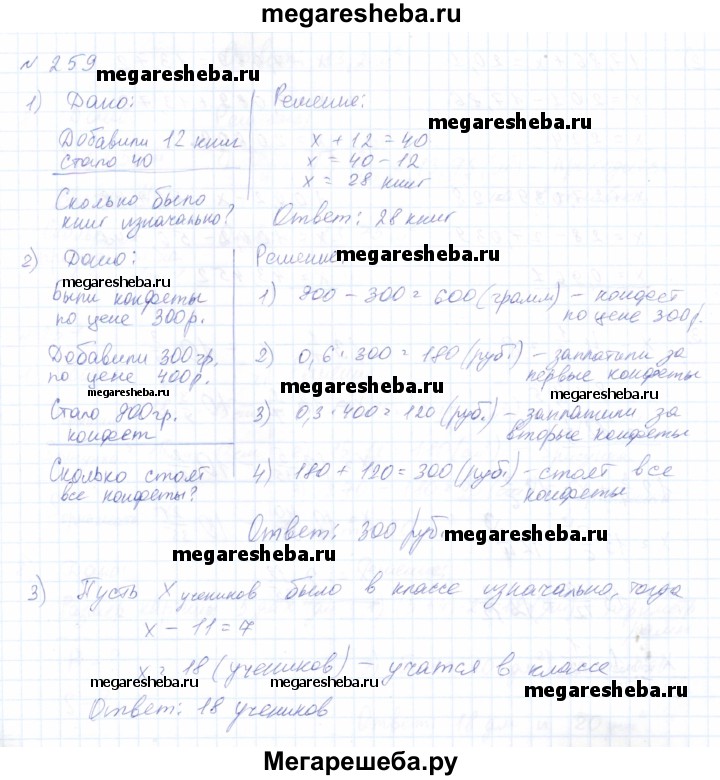 megaresheba.ru
№ 259
megaresheba.ru
1) Дано: Решение:
megaresheba.ru
Добавили 12 книг
стало 40
x + 12 = 40
x = 40 - 12
x = 28 книг
Сколько было
книг изначально?
Ответ: 28 книг
2) Дано: Решение
megaresheba.ru
megaresheba.ru
Были конфеты
по цене 300р.
1) 900 - 300 = 600 (грамм) - конфет
по цене 300р.
Добавили 300гр.
по цене 400р.
2) 0,6 · 300 = 180 (руб.) - заплатили за
первые конфеты
megaresheba.ru
megaresheba.ru
megaresheba.ru
Стало 900гр.
конфет
3) 0,3 · 400 = 120 (руб.) - заплатили за
вторые конфеты
Сколько стоят
все конфеты?
4) 180 + 120 = 300 (руб.) - стоят все
конфеты
Ответ: 300 руб.
megaresheba.ru
megaresheba.ru
3) Пусть x учеников было в классе изначально, тогда
x - 11 = 7
x = 18 (учеников) - учатся в классе
megaresheba.ru
megaresheba.ru
megaresheba.ru
Ответ: 18 учеников
Мегарешеба.ру